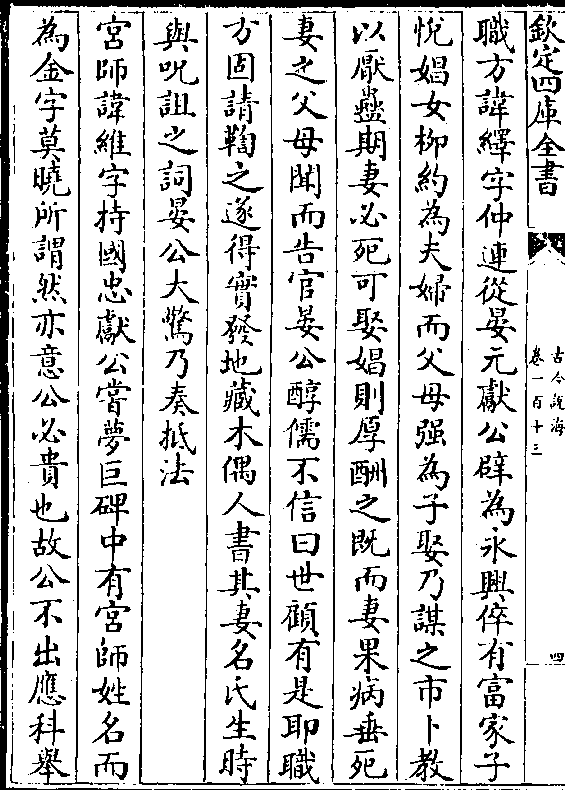 欽定四庫全書
古今說海
卷一百十三
四
職方諱繹字仲連從晏元獻公辟為永興倅有富家子
悅娼女柳約為夫婦而父母强為子娶乃謀之市卜教
以厭蠱期妻必死可娶娼則厚酬之既而妻果病垂死
妻之父母聞而告官晏公醇儒不信曰世顧有是耶職
方固請鞫之遂得實發地藏木偶人書其妻名氏生時
與呪詛之詞晏公大驚乃奏抵法
宮師諱維字持國忠獻公嘗夢巨碑中有宮師姓名而
為金字莫曉所謂然亦意公必貴也故公不出應科舉